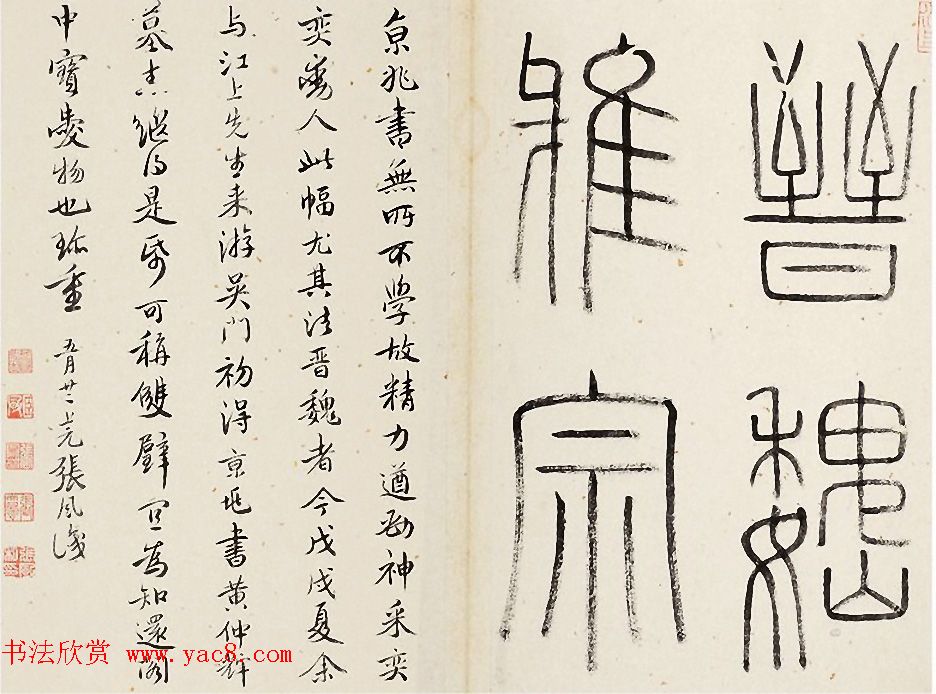 晉魏
雅宗
京兆書無所不學故精力遒勁神采奕
奕動人此幅尤其法晋魏者今戊戌夏余
与江上先生来游吴門初得京兆書黄仲輝
墓志繼得是帋可稱雙璧宜為知還閣
中寶愛物也珍重 五月廿二 張風識
书法欣赏 www.yac8.com